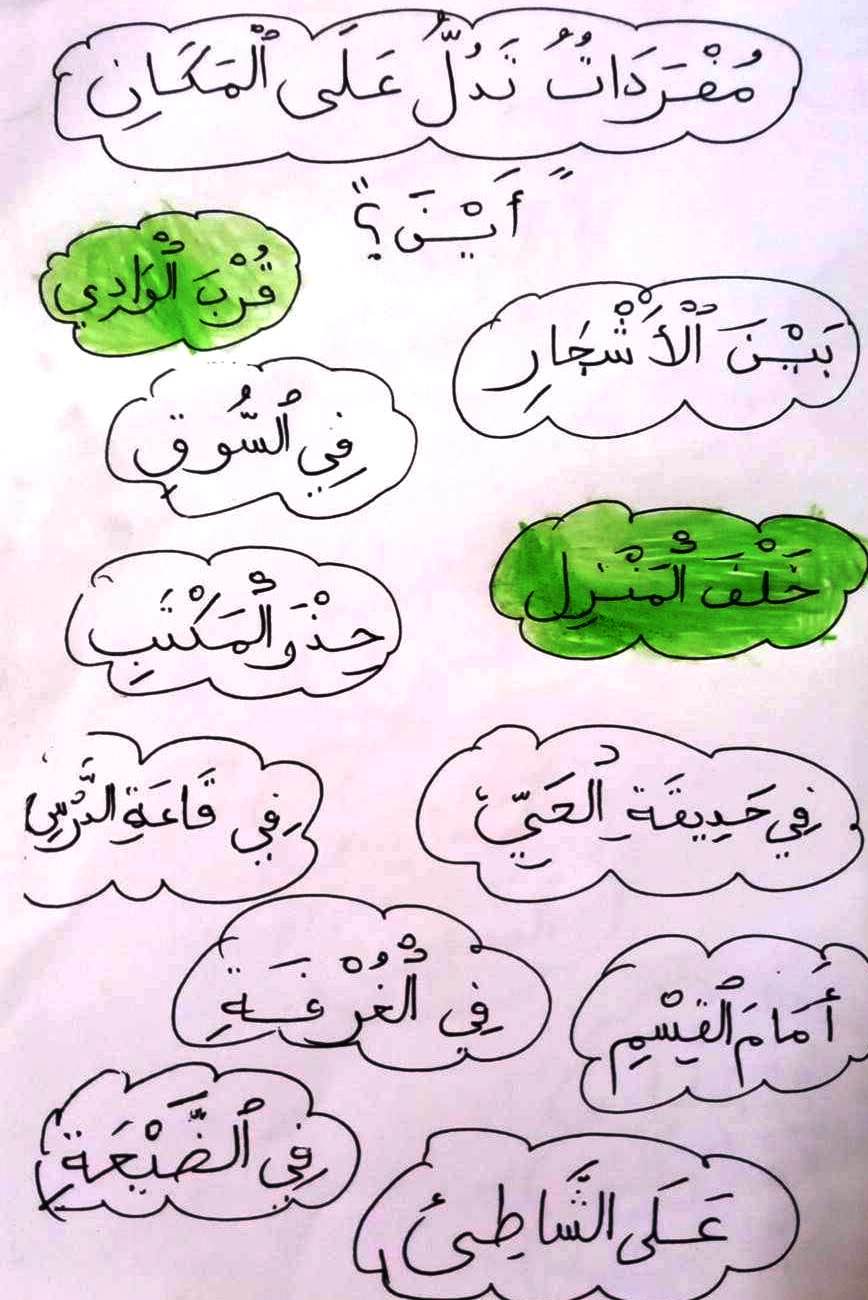 مُفْرَدَاتٌ تَدُلُّ عَلَى ٱلْمَكَانِ
"أَيْنَ؟"
قُرْبَ ٱلْوَادِي
بَيْنَ ٱلْأَشْجَارِ
فِي ٱلسُّوق
خَلْفَ ٱلْمَنْزِلِ
حِذْوَ ٱلْمَكْتَبِ
فِي حَدِيقَةِ ٱلحَيِّ
فِي قَاعَةِ الدَّرْسِ
فِي ٱلْغُرْفَةِ
أَمَامَ ٱلقِسْمِ
فِي ٱلضَّيْعَةِ
عَلَى الشَّاطِئ